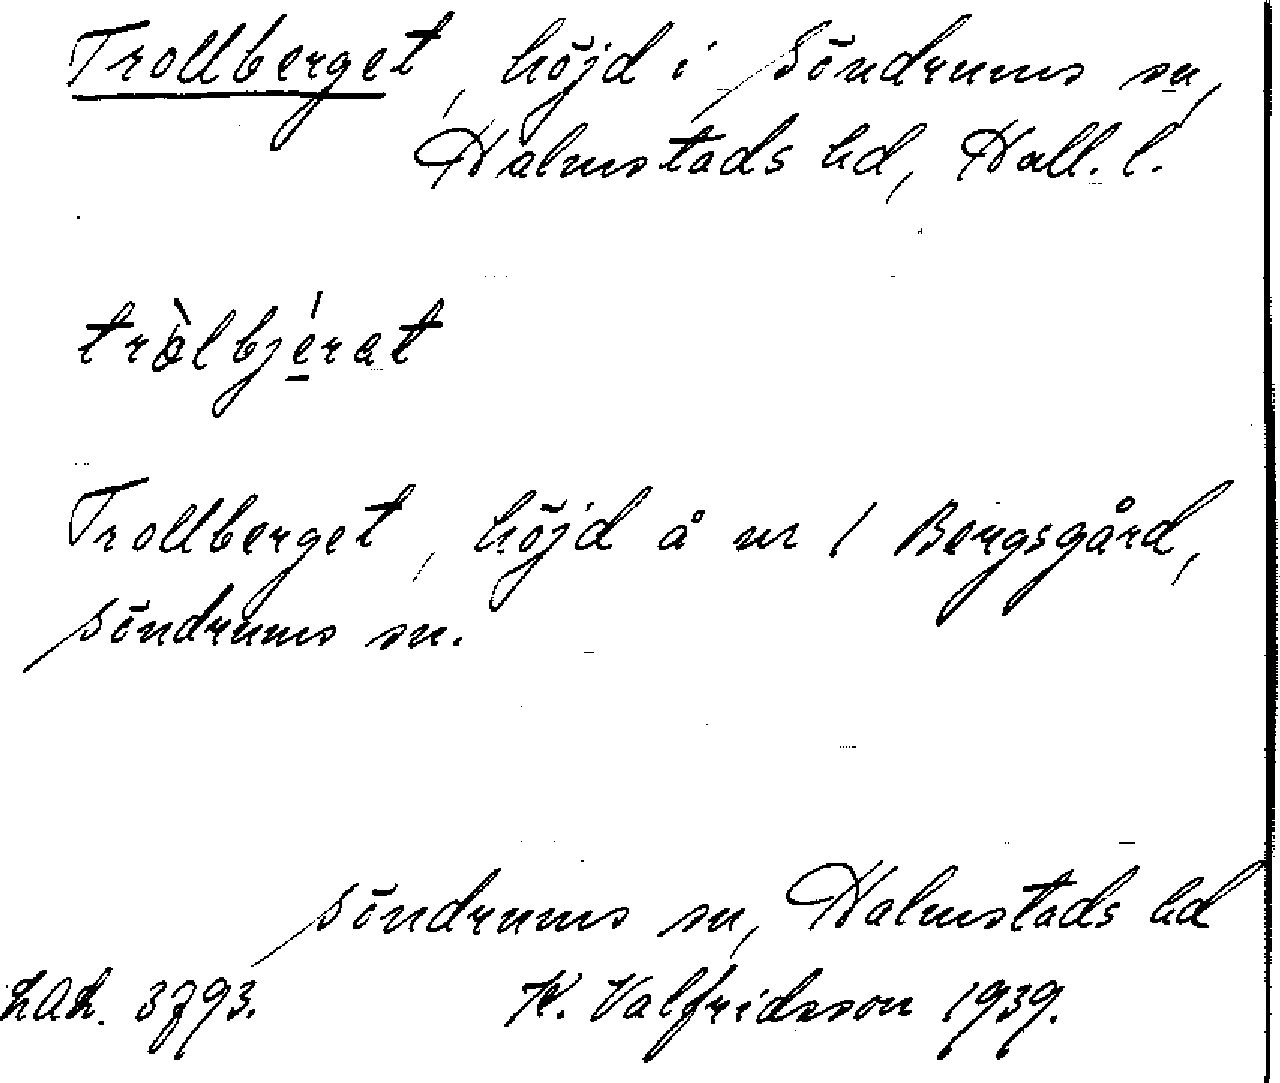 Trollberget, höjd i Söndrums sn,
Halmstads hd, Hall. l.
tròlbjérat
Trollberget, höjd å nr 1 Bergsgård,
Söndrums sn.
Söndrums sn, Halmstads hd
3793. K. Valfridsson 1939.